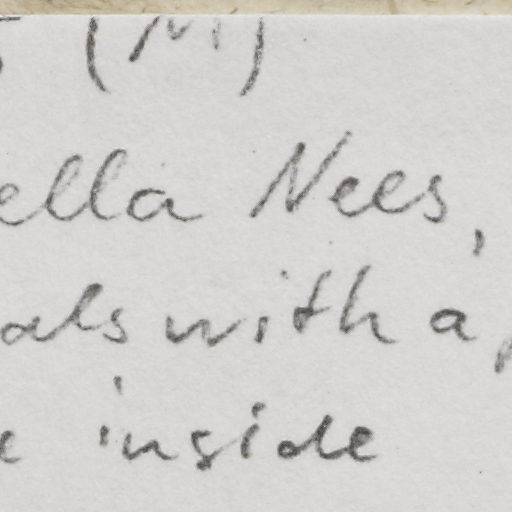 (M)
ella Nees,
als with a
inside